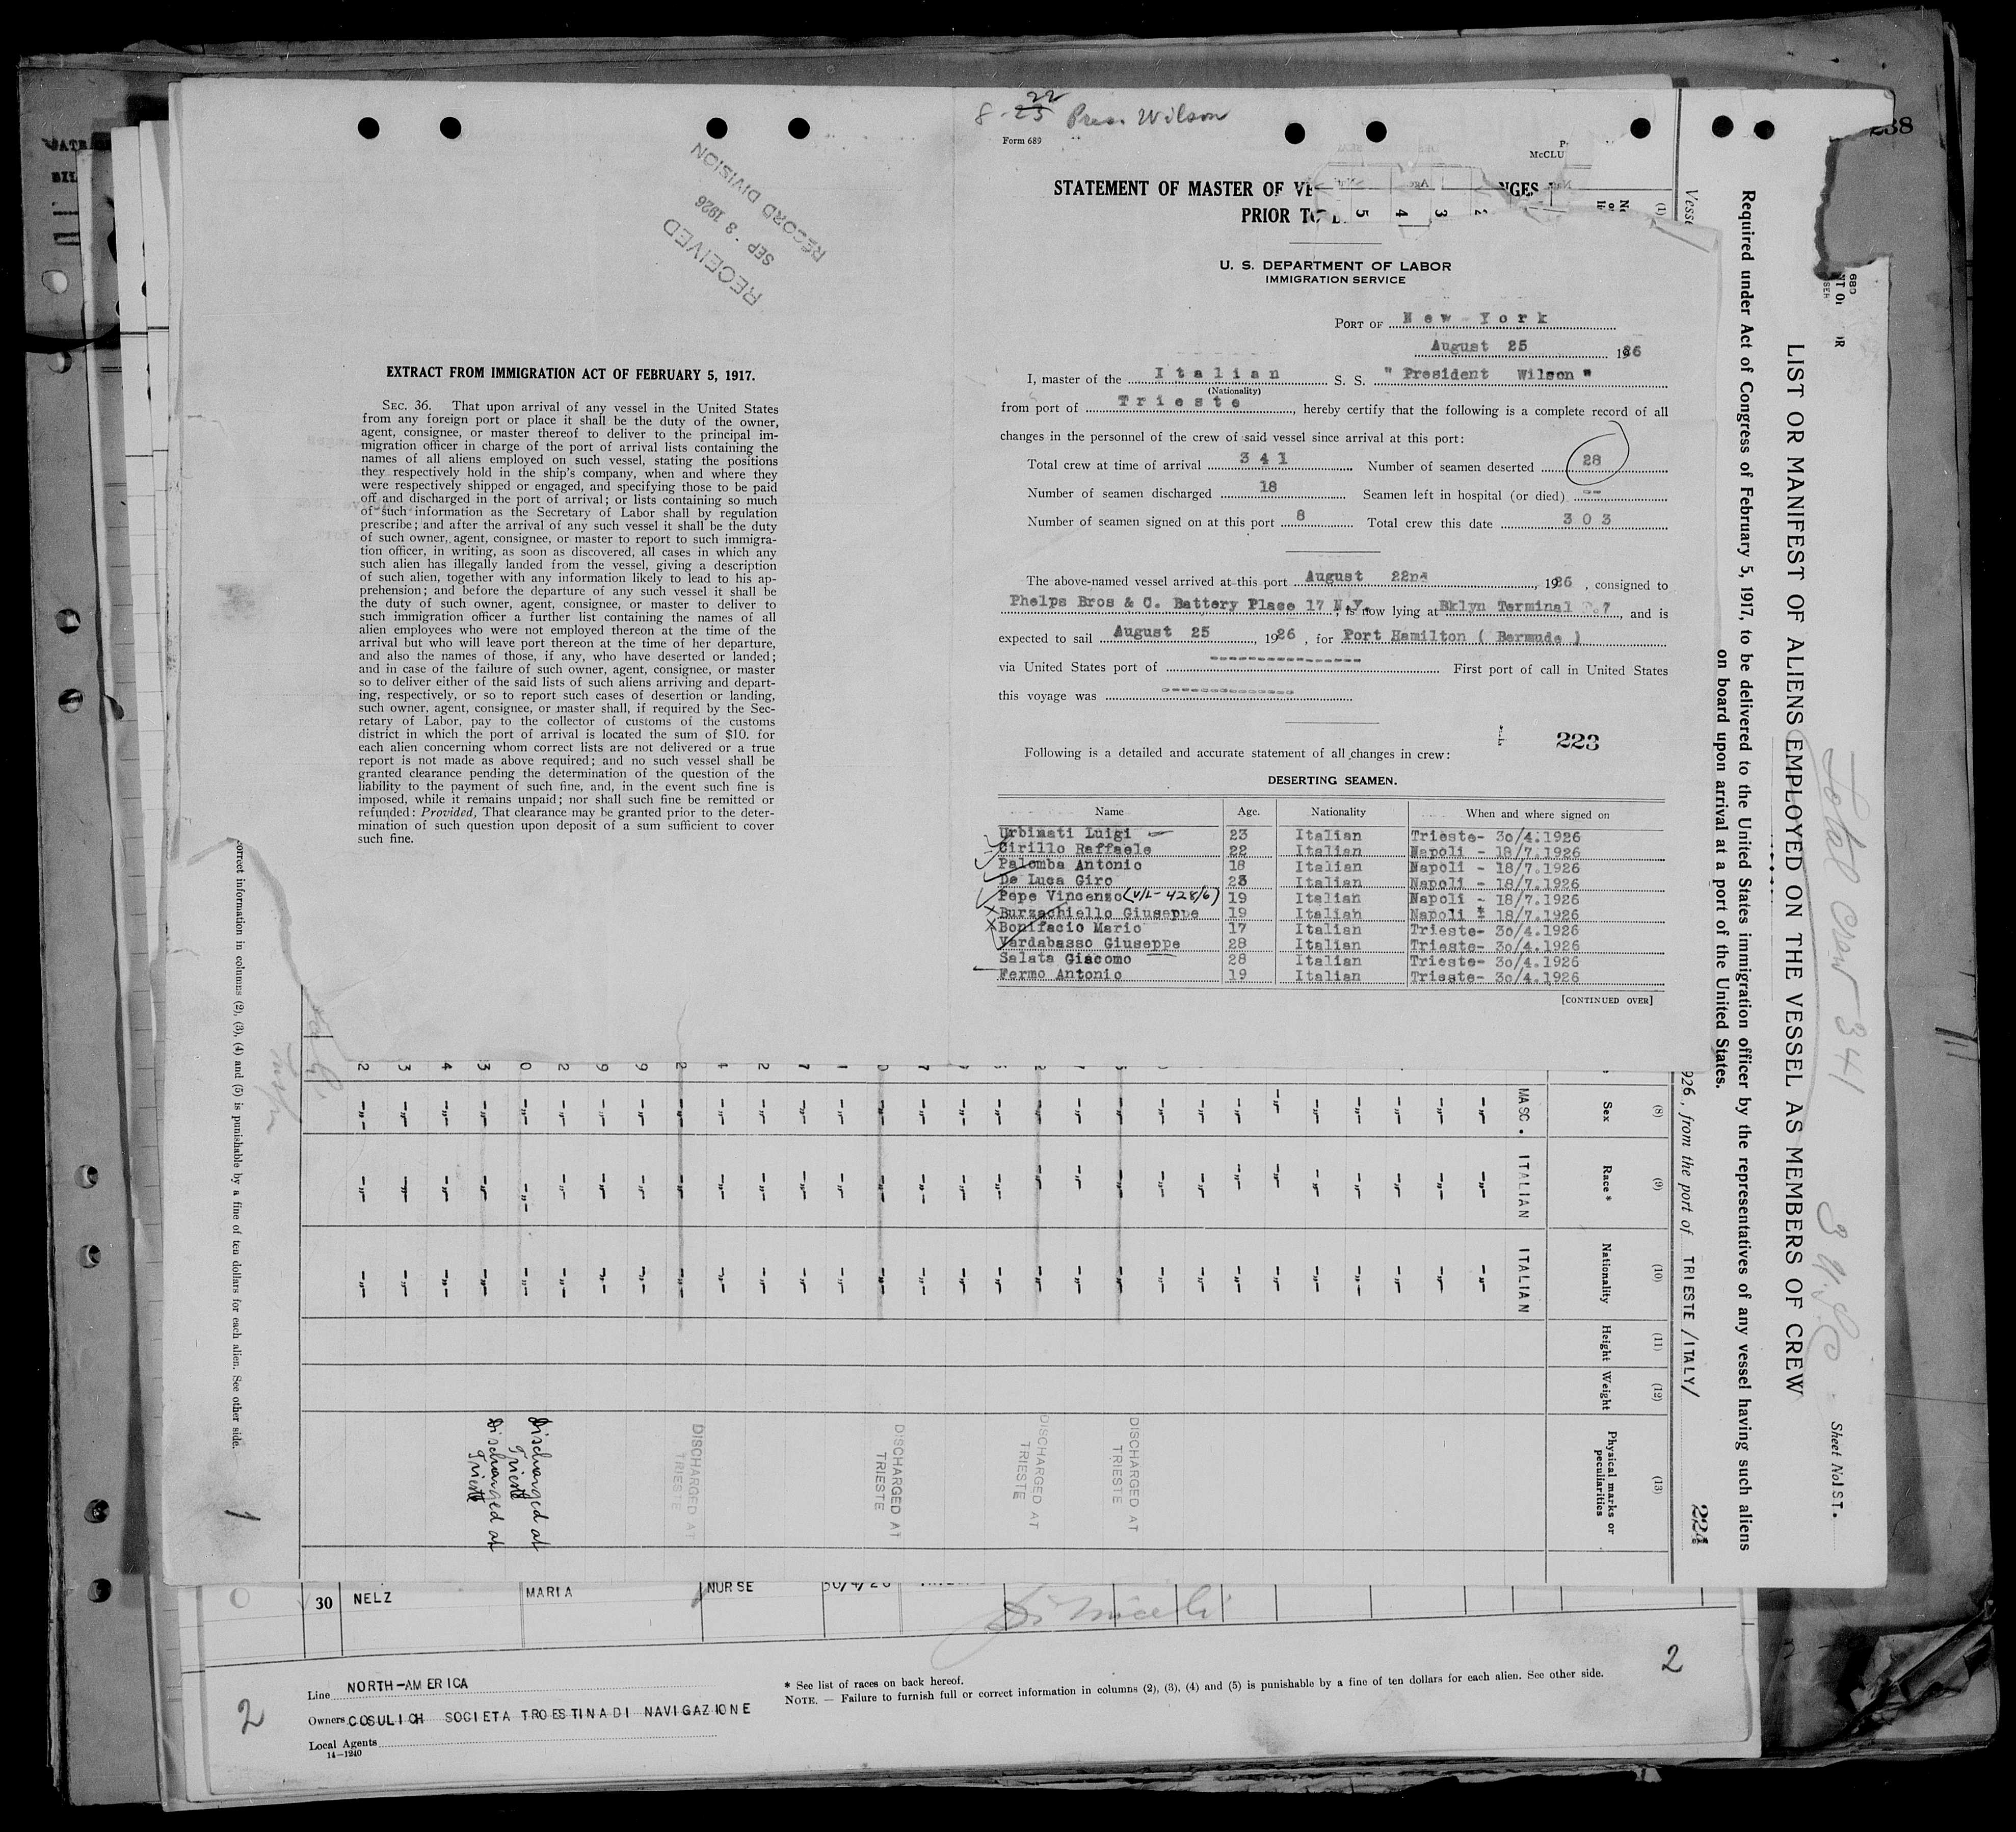 8-22 Pres. Wilson
Form 689
McCLU
STATEMENT OF MASTER OF VE NGES
PRIOR TO
U. S. DEPARTMENT OF LABOR
IMMIGRATION SERVICE
PORT OF New York
August 25 1926
I, master of the Italian S. S. "President Wilson"
(Nationality)
from port of Trieste, hereby certify that the following is a complete record of all
changes in the personnel of the crew of said vessel since arrival at this port:
Total crew at time of arrival 341 Number of seamen deserted 28
Number of seamen discharged 18 Seamen left in hospital (or died) --
Number of seamen signed on at this port 8 Total crew this date 303
The above-named vessel arrived at this port August 22nd, 1926, consigned to
Phelps Bros & C. Battery Place 17 N.Y., is now lying at Bklyn Terminal P.7, and is
expected to sail August 25, 1926, for Port Hamilton ( Bermuda )
via United States port of ---------------- First port of call in United States
this voyage was --------------
223
Following is a detailed and accurate statement of all changes in crew:
DESERTING SEAMEN.
Name Age. Nationality When and where signed on
Urbinati Luigi 23 Italian Trieste- 30/4.1926
Cirillo Raffaele 22 Italian Napoli - 18/7.1926
Palomba Antonio 18 Italian Napoli - 18/7.1926
De Luca Giro 23 Italian Napoli - 18/7.1926
Pepe Vincenzo (V/L-428/6) 19 Italian Napoli - 18/7.1926
Burzachiello Giuseppe 19 Italian Napoli * 18/7.1926
Bonifacio Mario 17 Italian Trieste- 30/4.1926
Vardabasso Giuseppe 28 Italian Trieste- 30/4.1926
Salata Giacomo 28 Italian Trieste- 30/4.1926
Fermo Antonio 19 Italian Trieste- 30/4.1926
[CONTINUED OVER]
RECEIVED
SEP 3 1926
RECORD DIVISION
EXTRACT FROM IMMIGRATION ACT OF FEBRUARY 5, 1917.
SEC. 36. That upon arrival of any vessel in the United States
from any foreign port or place it shall be the duty of the owner,
agent, consignee, or master thereof to deliver to the principal im-
migration officer in charge of the port of arrival lists containing the
names of all aliens employed on such vessel, stating the positions
they respectively hold in the ship's company, when and where they
were respectively shipped or engaged, and specifying those to be paid
off and discharged in the port of arrival; or lists containing so much
of such information as the Secretary of Labor shall by regulation
prescribe; and after the arrival of any such vessel it shall be the duty
of such owner, agent, consignee, or master to report to such immigra-
tion officer, in writing, as soon as discovered, all cases in which any
such alien has illegally landed from the vessel, giving a description
of such alien, together with any information likely to lead to his ap-
prehension; and before the departure of any such vessel it shall be
the duty of such owner, agent, consignee, or master to deliver to
such immigration officer a further list containing the names of all
alien employees who were not employed thereon at the time of the
arrival but who will leave port thereon at the time of her departure,
and also the names of those, if any, who have deserted or landed;
and in case of the failure of such owner, agent, consignee, or master
so to deliver either of the said lists of such aliens arriving and depart-
ing, respectively, or so to report such cases of desertion or landing,
such owner, agent, consignee, or master shall, if required by the Sec-
retary of Labor, pay to the collector of customs of the customs
district in which the port of arrival is located the sum of $10. for
each alien concerning whom correct lists are not delivered or a true
report is not made as above required; and no such vessel shall be
granted clearance pending the determination of the question of the
liability to the payment of such fine, and, in the event such fine is
imposed, while it remains unpaid; nor shall such fine be remitted or
refunded: Provided, That clearance may be granted prior to the deter-
mination of such question upon deposit of a sum sufficient to cover
such fine.
238
Total crew 341
Sheet No. 1ST.
LIST OR MANIFEST OF ALIENS EMPLOYED ON THE VESSEL AS MEMBERS OF CREW
Required under Act of Congress of February 5, 1917, to be delivered to the United States immigration officer by the representatives of any vessel having such aliens
on board upon arrival at a port of the United States.
Vesse
926, from the port of TRIESTE /ITALY/
224
(1) (8) (9) (10) (11) (12) (13)
Sex Race* Nationality Height Weight Physical marks or peculiarities
MASC. ITALIAN ITALIAN
DISCHARGED AT TRIESTE
DISCHARGED AT TRIESTE
DISCHARGED AT TRIESTE
DISCHARGED AT TRIESTE
Discharged at Trieste
Discharged at Trieste
orrect information in columns (2), (3), (4) and (5) is punishable by a fine of ten dollars for each alien. See other side.
1
30 NELZ MARIA NURSE 30/4/26
Line NORTH-AMERICA
Owners COSULICH SOCIETA TROESTINA DI NAVIGAZIONE
Local Agents
14-1240
* See list of races on back hereof.
NOTE. — Failure to furnish full or correct information in columns (2), (3), (4) and (5) is punishable by a fine of ten dollars for each alien. See other side.
2
2